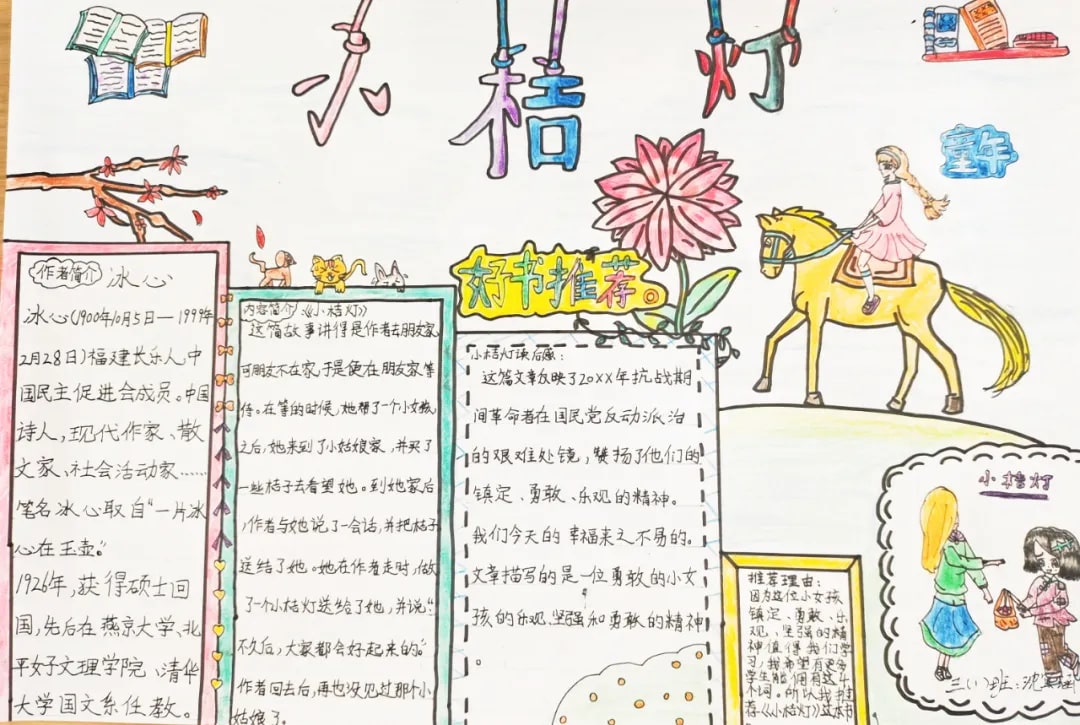 小桔灯
童年
好书推荐。
作者简介 冰心
冰心(1900年10月5日—1999年
2月28日)福建长乐人,中
国民主促进会成员。中国
诗人,现代作家、散
文家、社会活动家……
笔名冰心取自“一片冰
心在玉壶。”
1926年,获得硕士回
国,先后在燕京大学、北
平女子文理学院、清华
大学国文系任教。
内容简介:《小桔灯》
这篇故事讲得是作者去朋友家,
可朋友不在家,于是便在朋友家等
待。在等的时候,她帮了一个小女孩
之后,她来到了小姑娘家,并买了
一些桔子去看望她。到她家后
,作者与她说了一会话,并把桔子
送结了她。她在作者走时,做
了一个小桔灯送给了她,并说“
不久后,大家都会好起来的”
作者回去后,再也没见过那个小
姑娘了。
小桔灯读后感:
这篇文章反映了20XX年抗战期
间革命者在国民党反动派治
的艰难处镜,赞扬了他们的
镇定、勇敢、乐观的精神。
我们今天的幸福来之不易的。
文章描写的是一位勇敢的小女
孩的乐观、坚强和勇敢的精神
。
推荐理由:
因为这位小女孩
镇定、勇敢、乐
观、坚强的精
神值得我们学
习,我希望有更多
学生能拥有这4
个词。所以我推
荐《小桔灯》这本书
小桔灯
三(1)班:沈